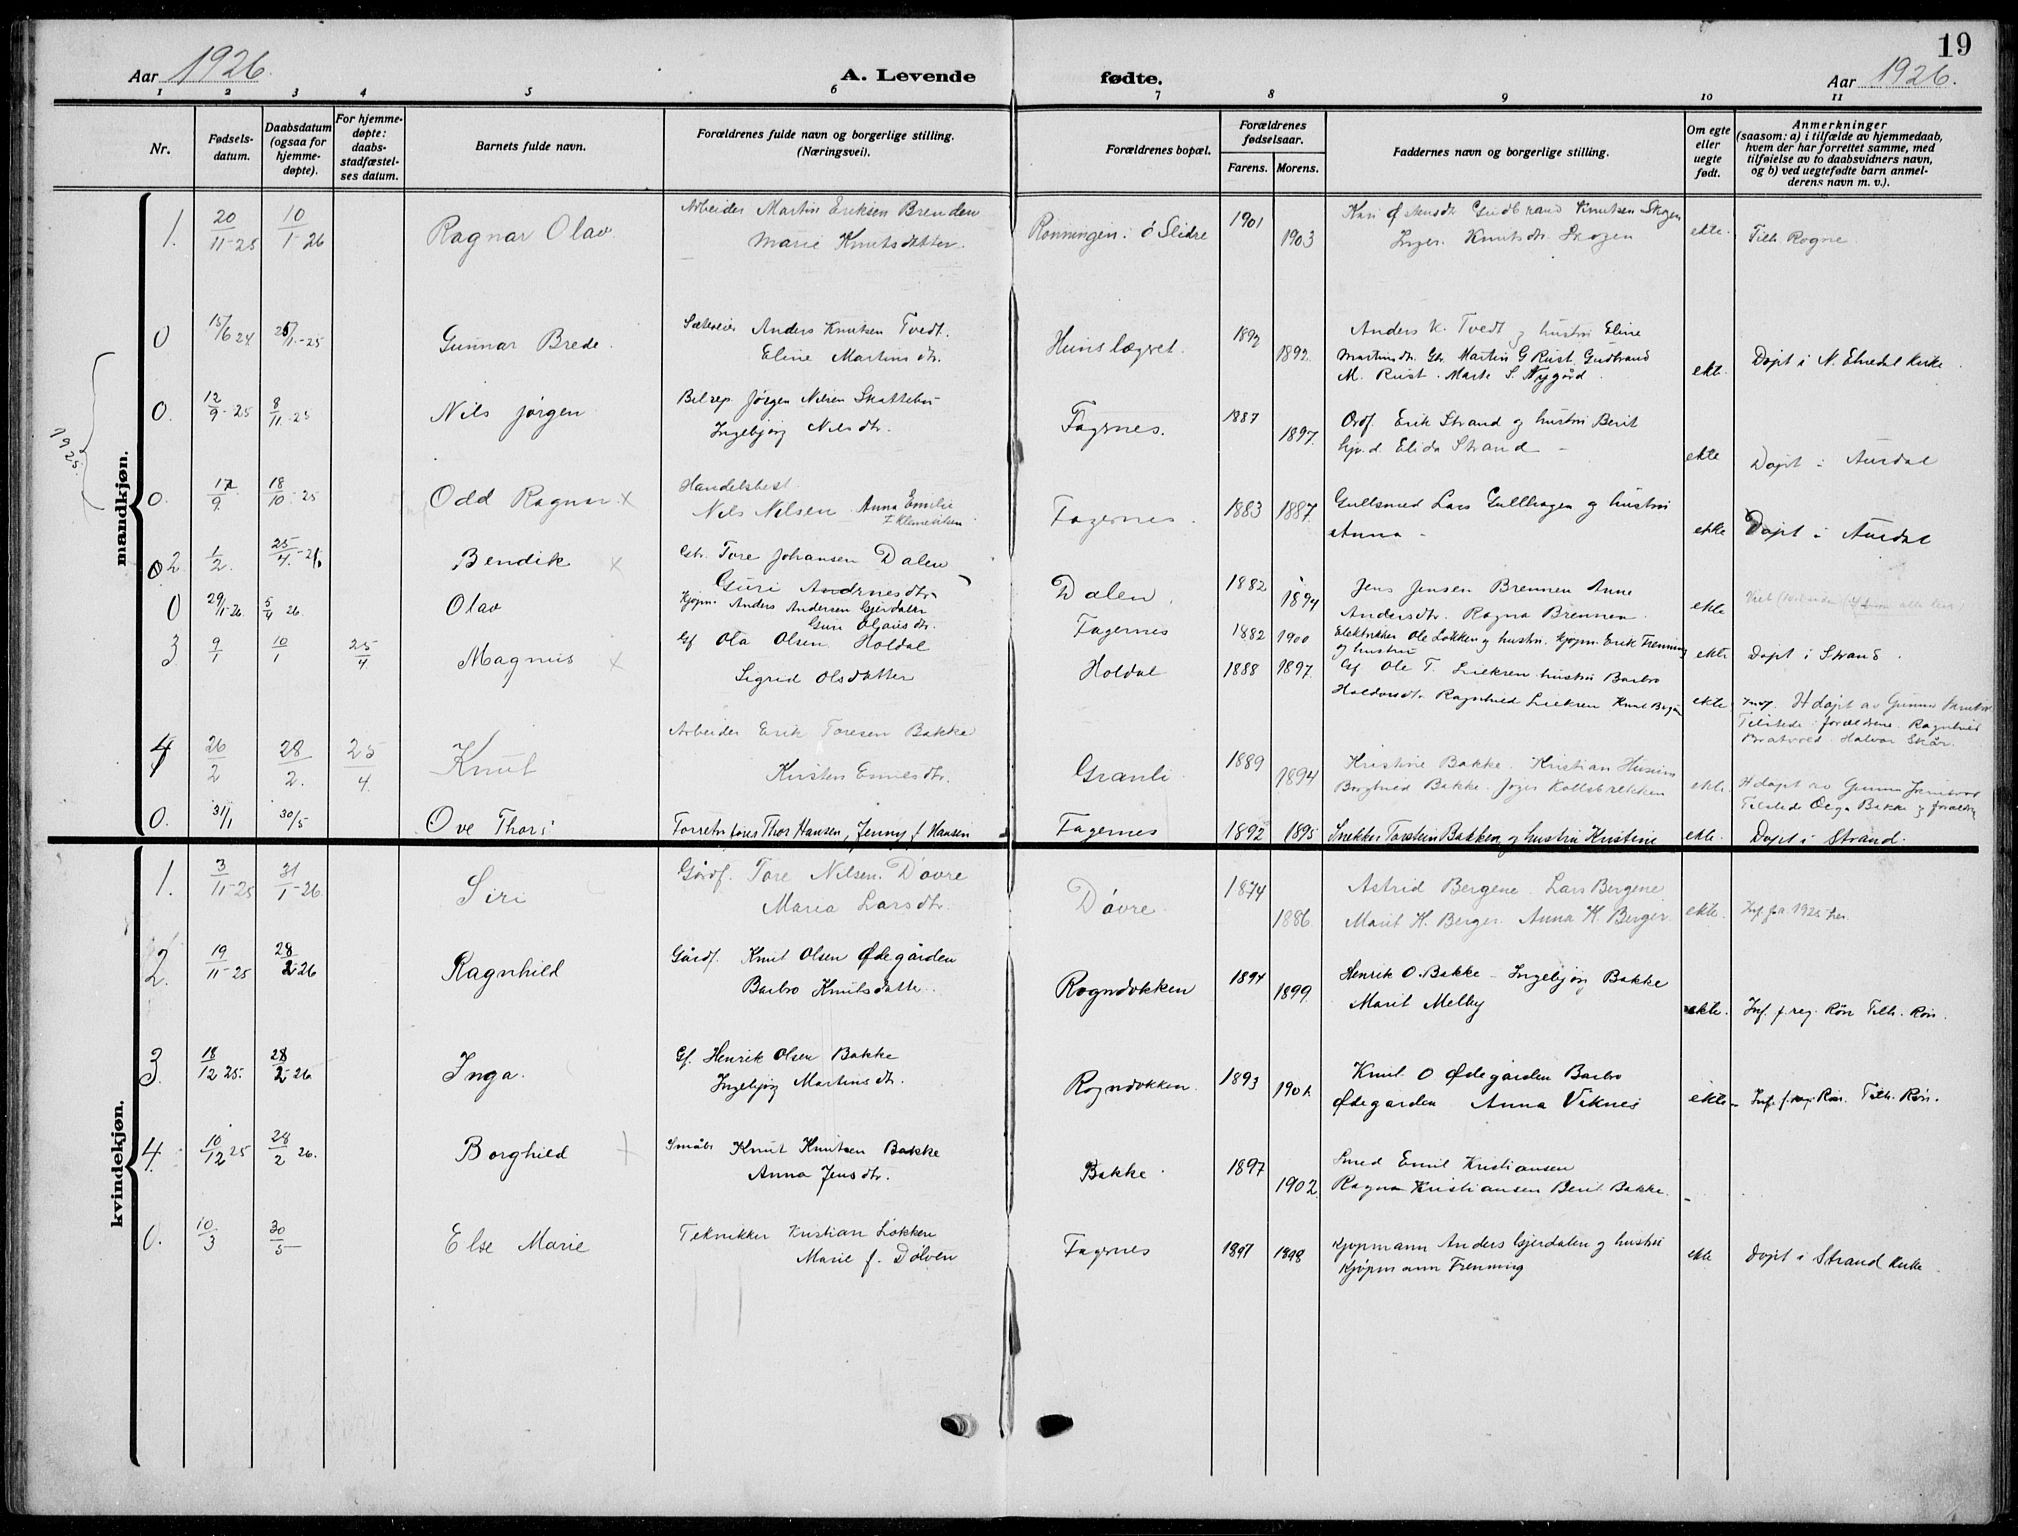 19
Aar 1926.
A. Levende fødte.
Aar 1926.
1 2 3 4 5 6 7 8 9 10 11
Nr.
Fødsels-
datum.
Daabsdatum
(ogsaa for
hjemme-
døpte).
For hjemme-
døpte:
daabs-
stadfæstel-
ses datum.
Barnets fulde navn.
Forældrenes fulde navn og borgerlige stilling.
(Næringsvei).
Forældrenes bopæl.
Forældrenes
fødselsaar.
Farens. Morens.
Faddernes navn og borgerlige stilling.
Om egte
eller
uegte
født.
Anmerkninger
(saasom: a) i tilfælde av hjemmedaab,
hvem der har forrettet samme, med
tilføielse av to daabsvidners navn,
og b) ved uegtefødte barn anmel-
derens navn m. v.).
mandkjøn.
1925.
1. 20/11-25 10/1-26 Ragnar Olav. Arbeider Martin Eriksen Brenden
Marie Knutsdatter. Rønningen i Ø Slidre 1901 1903 Gudbrand Knutsen Skogen
Inger Knutsdtr. Skogen ekte. Tilh. Rogne.
0 15/6 24 25/1-25 Gunnar Brede. Anders Knutsen Tvedt.
Eline Martinsdtr. 1892. Anders K. Tvedt og hustri Eline
Martinsdtr. Gbr. Martin G Rust. Gudbrand
M. Rust. Marte S. Nygård. ekte. Døpt i N. Etnedal Kirke
0. 12/9-25 8/11-25 Nils Jørgen Jørgen Nilsen Skattebu
Ingebjørg Nilsdtr. Fagernes. 1887 1897. Ordf. Erik Strand og hustri Berit
Elida Strand ekte Døpt i Aurdal
0. 17/9. 18/10-25 Odd Ragnar x Handelsbest.
Nils Nilsen. Anna Emilie
f. Klemetsen. Fagernes. 1883 1887. Gullsmed Lars Gullhagen og hustri
Anna ekte Døpt i Aurdal
02 1/2. 25/4-26 Bendik x Gbr. Tore Johansen Dalen
Guri Andrnesdtr. Dalen. 1882 1894 Jens Jensen Brennen Anne
Andersdtr. Ragna Brennen. ekte
0 29/1-26. 5/4 26 Olav Kjøpm. Anders Andersen Gjerdalen
Guri Olausdtr. Fagernes 1882 1900 Elektriker Ole Løkken og hustri. Kjøpm. Erik Frenning
og hustri ekte Døpt i Strand.
3 9/1 10/1 25/4 Magnus x Gf Ola Olsen Holdal
Sigrid Olsdatter Holdal 1888 1897. Gf Ole T. Lieksen hustri Barbro
Ragnhild Lieksen Knut Bergene ekte H døpt av Gunnar
Tilstede: forældrene. Ragnhild
Bratvold. Halvor Skår.
4 26/2 28/2. 25/4 Knut Arbeider Erik Toresen Bakke
Kirsten Emilsdtr. Granli 1889 1894 Kristine Bakke. Kristian Husum
Borghild Bakke. Kollsbrekken ekte. H døpt av Gunnar
Tilstede Olga Bakke og forældre
0. 31/1 30/5 Ove Thor Forretn.fører Thor Hansen, Jenny f. Hansen Fagernes 1892 1895 Snekker Torstein Bakken og hustri Kristine ekte. Døpt i Strand.
kvindekjøn.
1. 3/11-25 31/1-26 Siri Gårdf. Tore Nilsen. Døvre
Maria Larsdtr. Døvre. 1874 1886 Astrid Bergene. Lars Bergene
Marit H. Berger. Anna H. Berger. ekte. Inf. for 1925 her.
2. 19/11-25 28/2-26 Ragnhild Gårdf. Knut Olsen Ødegården
Barbro Knutsdatter. Rogndokken 1894 1899 Henrik O. Bakke - Ingebjørg Bakke
Marit Melby ekte. Inf. f. reg. Røn Tilh. Røn.
3. 18/12 25. 28/2-26 Inga. Gf. Henrik Olsen Bakke
Ingebjørg Martinsdtr. Rogndokken. 1893 1901. Knut O Ødegården Barbro
Ødegården Anna Viknes ekte Inf. f. reg. Røn. Tilh. Røn.
4. 10/12 25 28/2 26. Borghild Småbr Knut Knutsen Bakke
Anna Jensdtr. Bakke. 1897 1902 Smed Emil Kristiansen
Ragna Kristiansen Berit Bakke. -
0. 10/3 30/5 Else Marie Tekniker Kristian Løkken
Marie f. Dølven Fagernes 1897 1898 Kjøpmann Anders Gjerdalen og hustri
Kjøpmann Frenning ekte Døpt i Strand Kirke